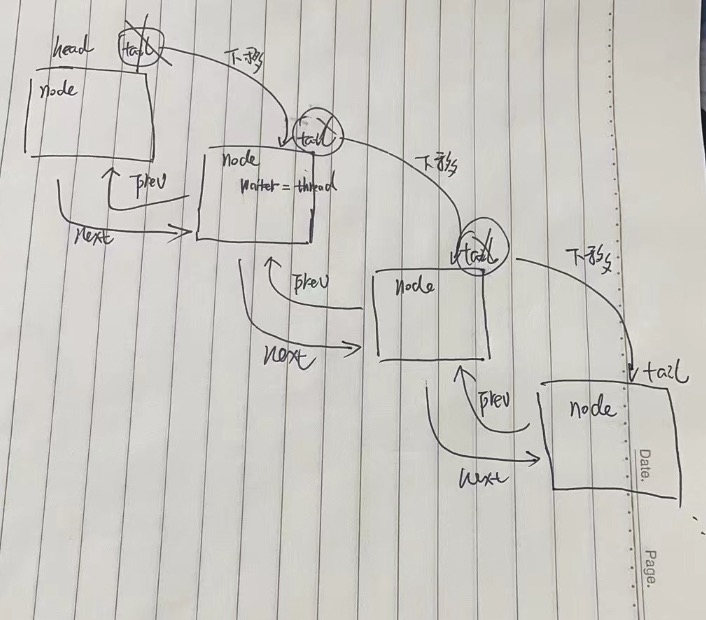 head
tail
下移
node
tail
下移
node
waiter = thread
prev
next
tail
下移
node
prev
next
tail
node
prev
next
Date.
Page.